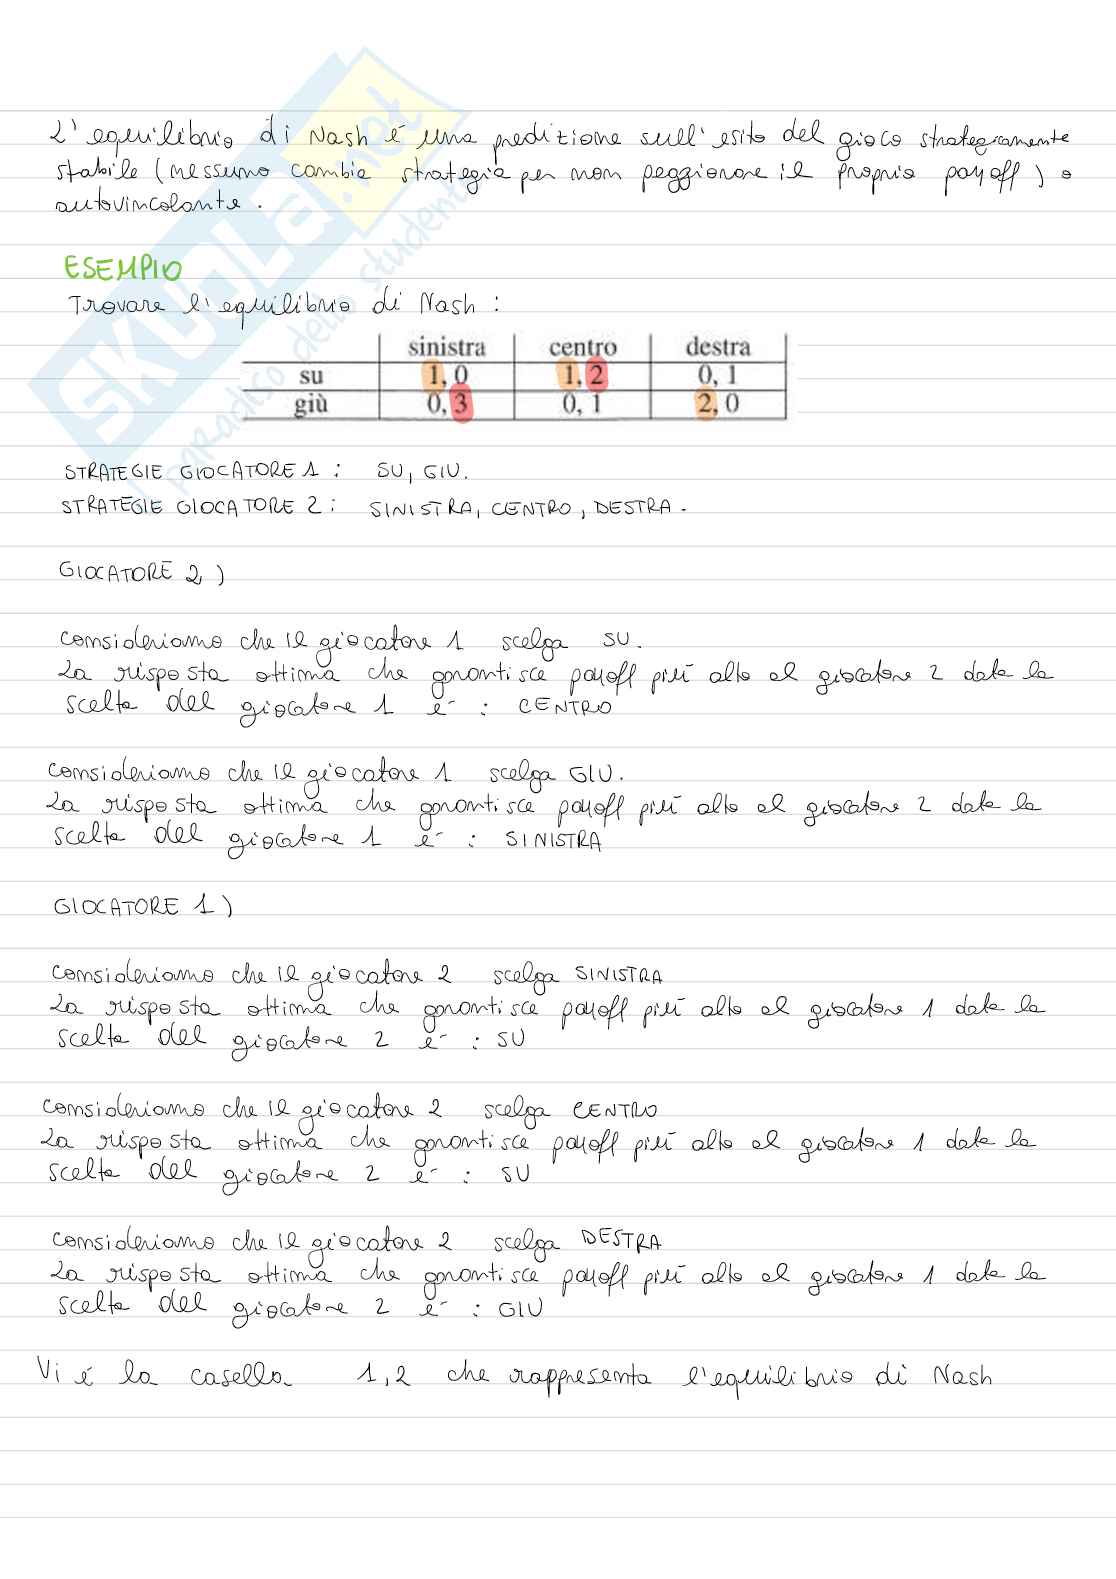 L'equilibrio di Nash é una predizione sull'esito del gioco strategicamente
stabile (nessuno cambia strategia per non peggiorare il proprio payoff) o
autovincolante.
ESEMPIO
Trovare l'equilibrio di Nash :
sinistra centro destra
su 1, 0 1, 2 0, 1
giù 0, 3 0, 1 2, 0
STRATEGIE GIOCATORE 1 : SU, GIU.
STRATEGIE GIOCATORE 2 : SINISTRA, CENTRO, DESTRA.
GIOCATORE 2 )
Consideriamo che il giocatore 1 scelga SU.
La risposta ottima che garantisce payoff più alto al giocatore 2 data la
scelta del giocatore 1 è : CENTRO
Consideriamo che il giocatore 1 scelga GIU.
La risposta ottima che garantisce payoff più alto al giocatore 2 data la
scelta del giocatore 1 è : SINISTRA
GIOCATORE 1 )
Consideriamo che il giocatore 2 scelga SINISTRA
La risposta ottima che garantisce payoff più alto al giocatore 1 data la
scelta del giocatore 2 è : SU
Consideriamo che il giocatore 2 scelga CENTRO
La risposta ottima che garantisce payoff più alto al giocatore 1 data la
scelta del giocatore 2 è : SU
Consideriamo che il giocatore 2 scelga DESTRA
La risposta ottima che garantisce payoff più alto al giocatore 1 data la
scelta del giocatore 2 è : GIU
Vi é la casella 1,2 che rappresenta l'equilibrio di Nash
SKUOLA.net
il paradiso dello studente